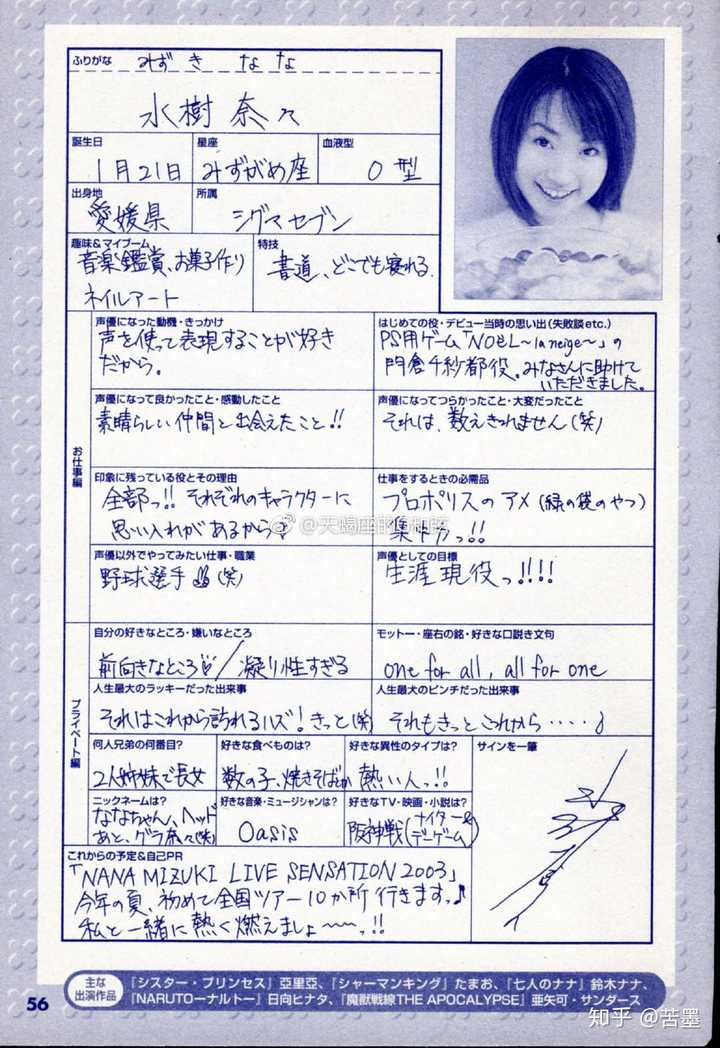 ふりがな みずきなな
水樹奈々
誕生日 星座 血液型
1月21日 みずがめ座 O型
出身地 所属
愛媛県 シグマセブン
趣味&マイブーム 特技
音楽鑑賞、お菓子作り 書道、どこでも寝れる。
ネイルアート
お仕事編
声優になった動機・きっかけ
声を使って表現することが好き
だから。
はじめての役・デビュー当時の思い出(失敗談etc.)
PS用ゲーム「NOëL〜la neige〜」の
門倉千紗都役。みなさんに助けて
いただきました。
声優になって良かったこと・感動したこと
素晴らしい仲間と出会えたこと!!
声優になってつらかったこと・大変だったこと
それは、数えきれません(笑)
印象に残っている役とその理由
全部っ!! それぞれのキャラクターに
思い入れがあるから
仕事をするときの必需品
プロポリスのアメ(緑の袋のやつ)
集中力っ!!
声優以外でやってみたい仕事・職業
野球選手(笑)
声優としての目標
生涯現役っ!!!!
プライベート編
自分の好きなところ・嫌いなところ
前向きなところ♡/凝り性すぎる
モットー・座右の銘・好きな口説き文句
one for all, all for one
人生最大のラッキーだった出来事
それはこれから訪れるハズ!きっと(笑)
人生最大のピンチだった出来事
それもきっとこれから・・・・・♪
何人兄弟の何番目?
2人姉妹で長女
好きな食べものは?
数の子、焼きそばとか
好きな異性のタイプは?
熱い人っ!!
サインを一筆
ニックネームは?
ななちゃん、ヘッド
あと、ゲラ奈々(笑)
好きな音楽・ミュージシャンは?
Oasis
好きなTV・映画・小説は?
阪神戦(ナイター&
デーゲーム)
これからの予定&自己PR
「NANA MIZUKI LIVE SENSATION 2003」
今年の夏、初めて全国ツアー10か所行きますっ♪
私と一緒に熱く燃えましょ〜〜っ!!
主な
出演作品
『シスター・プリンセス』亞里亞、『シャーマンキング』たまお、『七人のナナ』鈴木ナナ、
『NARUTOーナルトー』日向ヒナタ、『魔獣戦線THE APOCALYPSE』亜矢可・サンダース
56
知乎 @苦墨